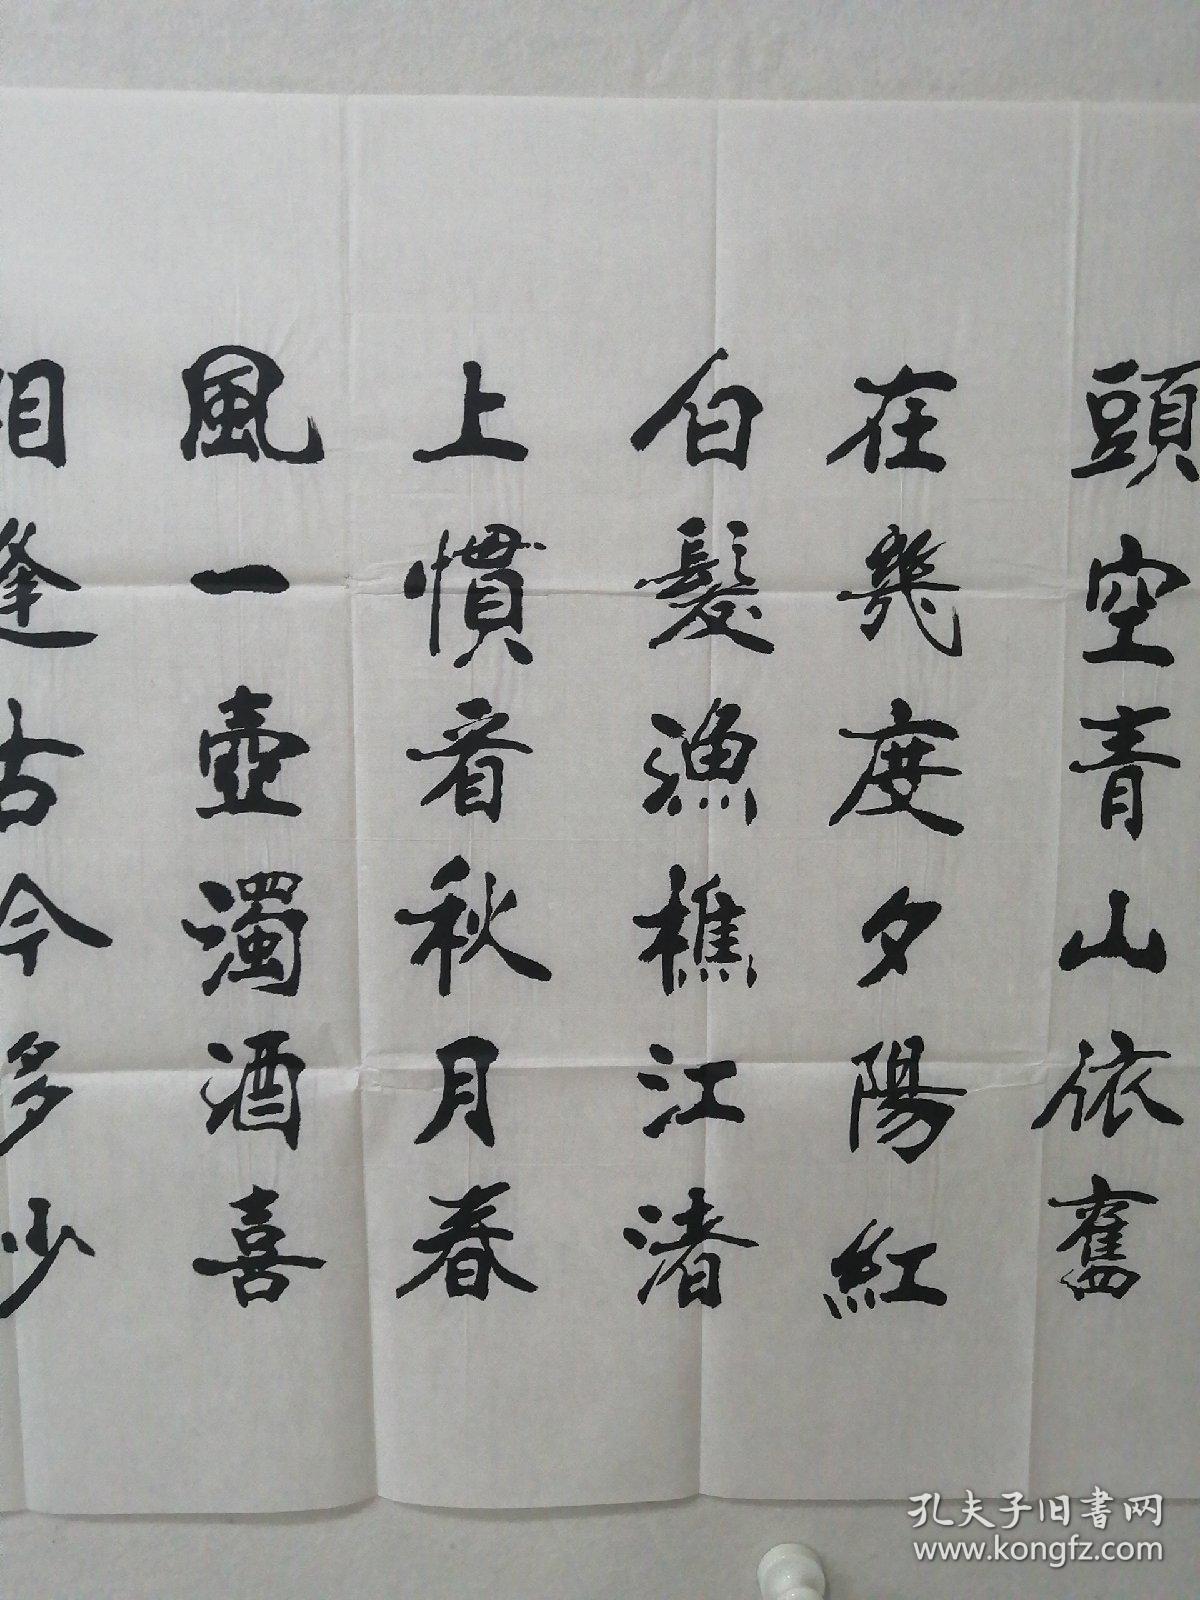 頭空青山依舊
在幾度夕陽紅
白髮漁樵江渚
上慣看秋月春
風一壺濁酒喜
相逢古今多少
孔夫子旧书网
www.kongfz.com